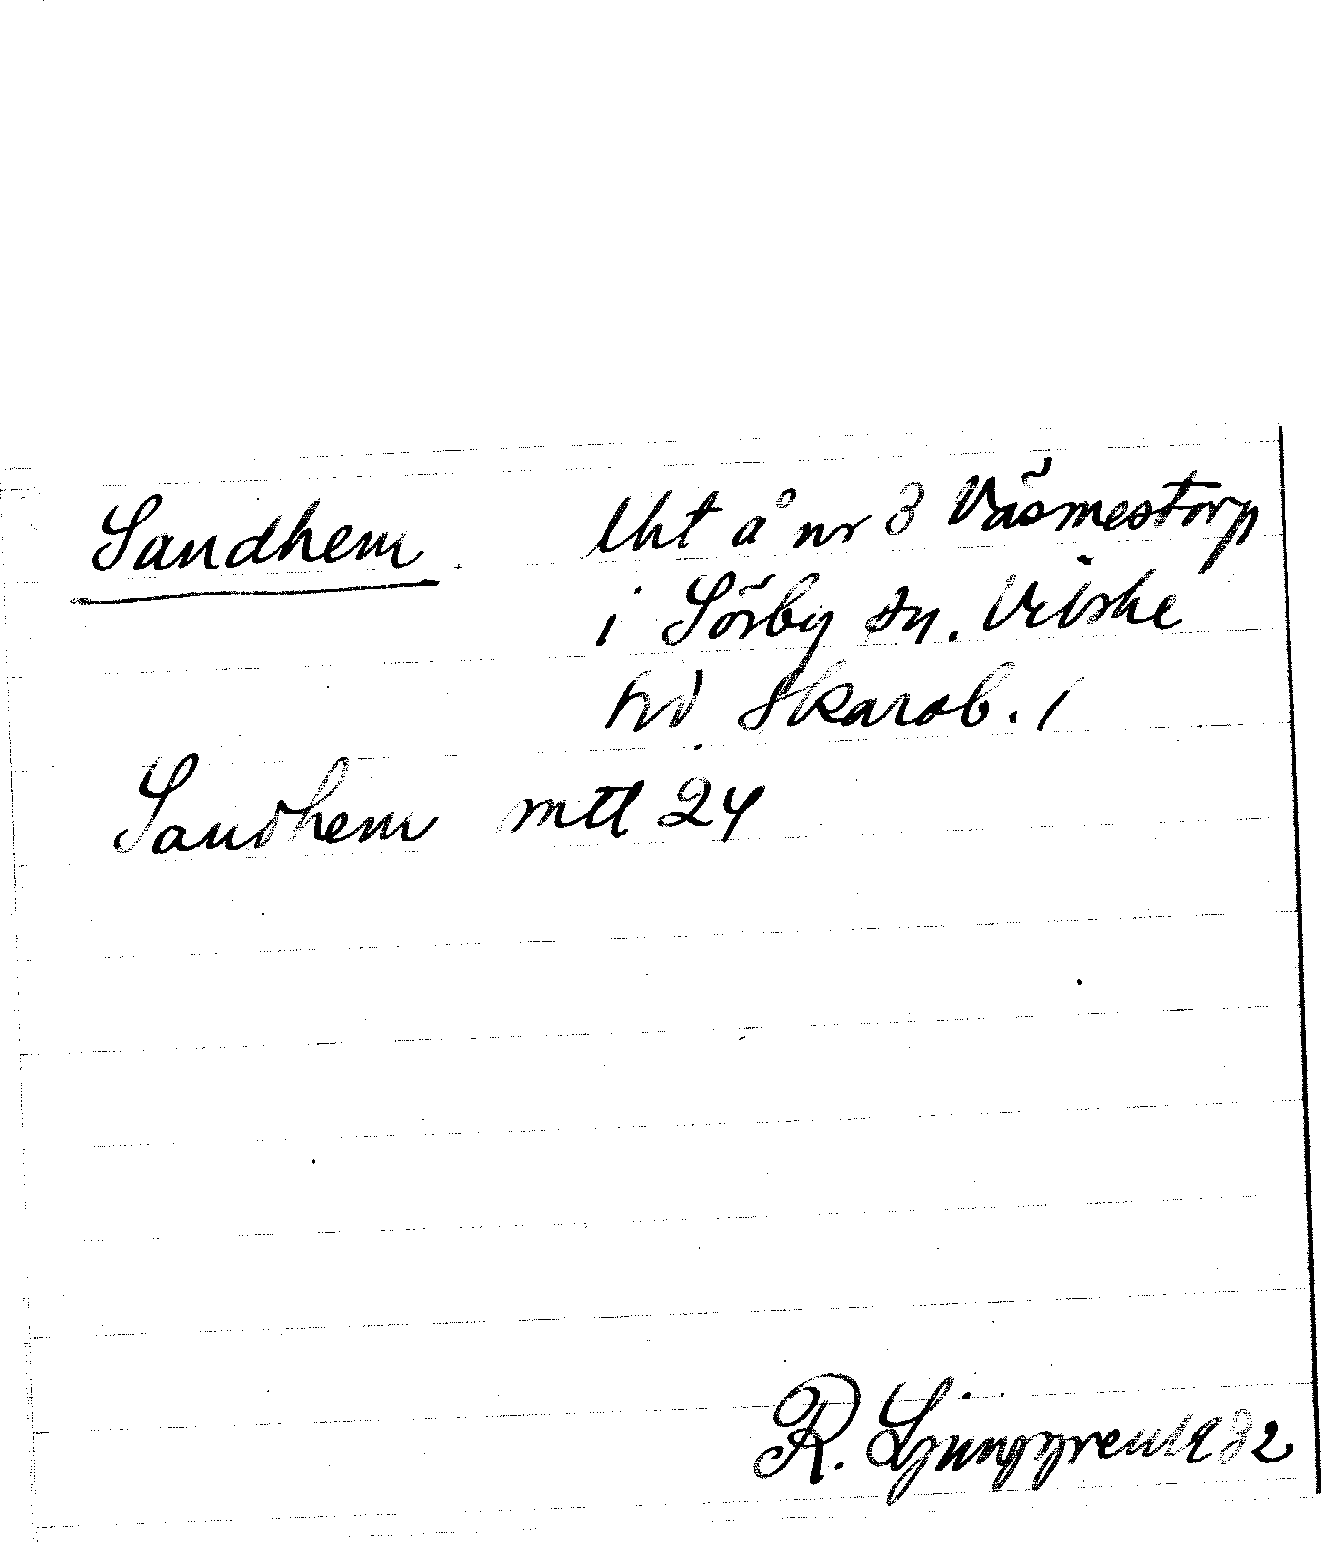 Sandhem Uht å nr 3 Väsmestorp
i Sörby sn. Vilske
hd Skarab. l
Sandhem mtl 24
R. Ljunggren 1932